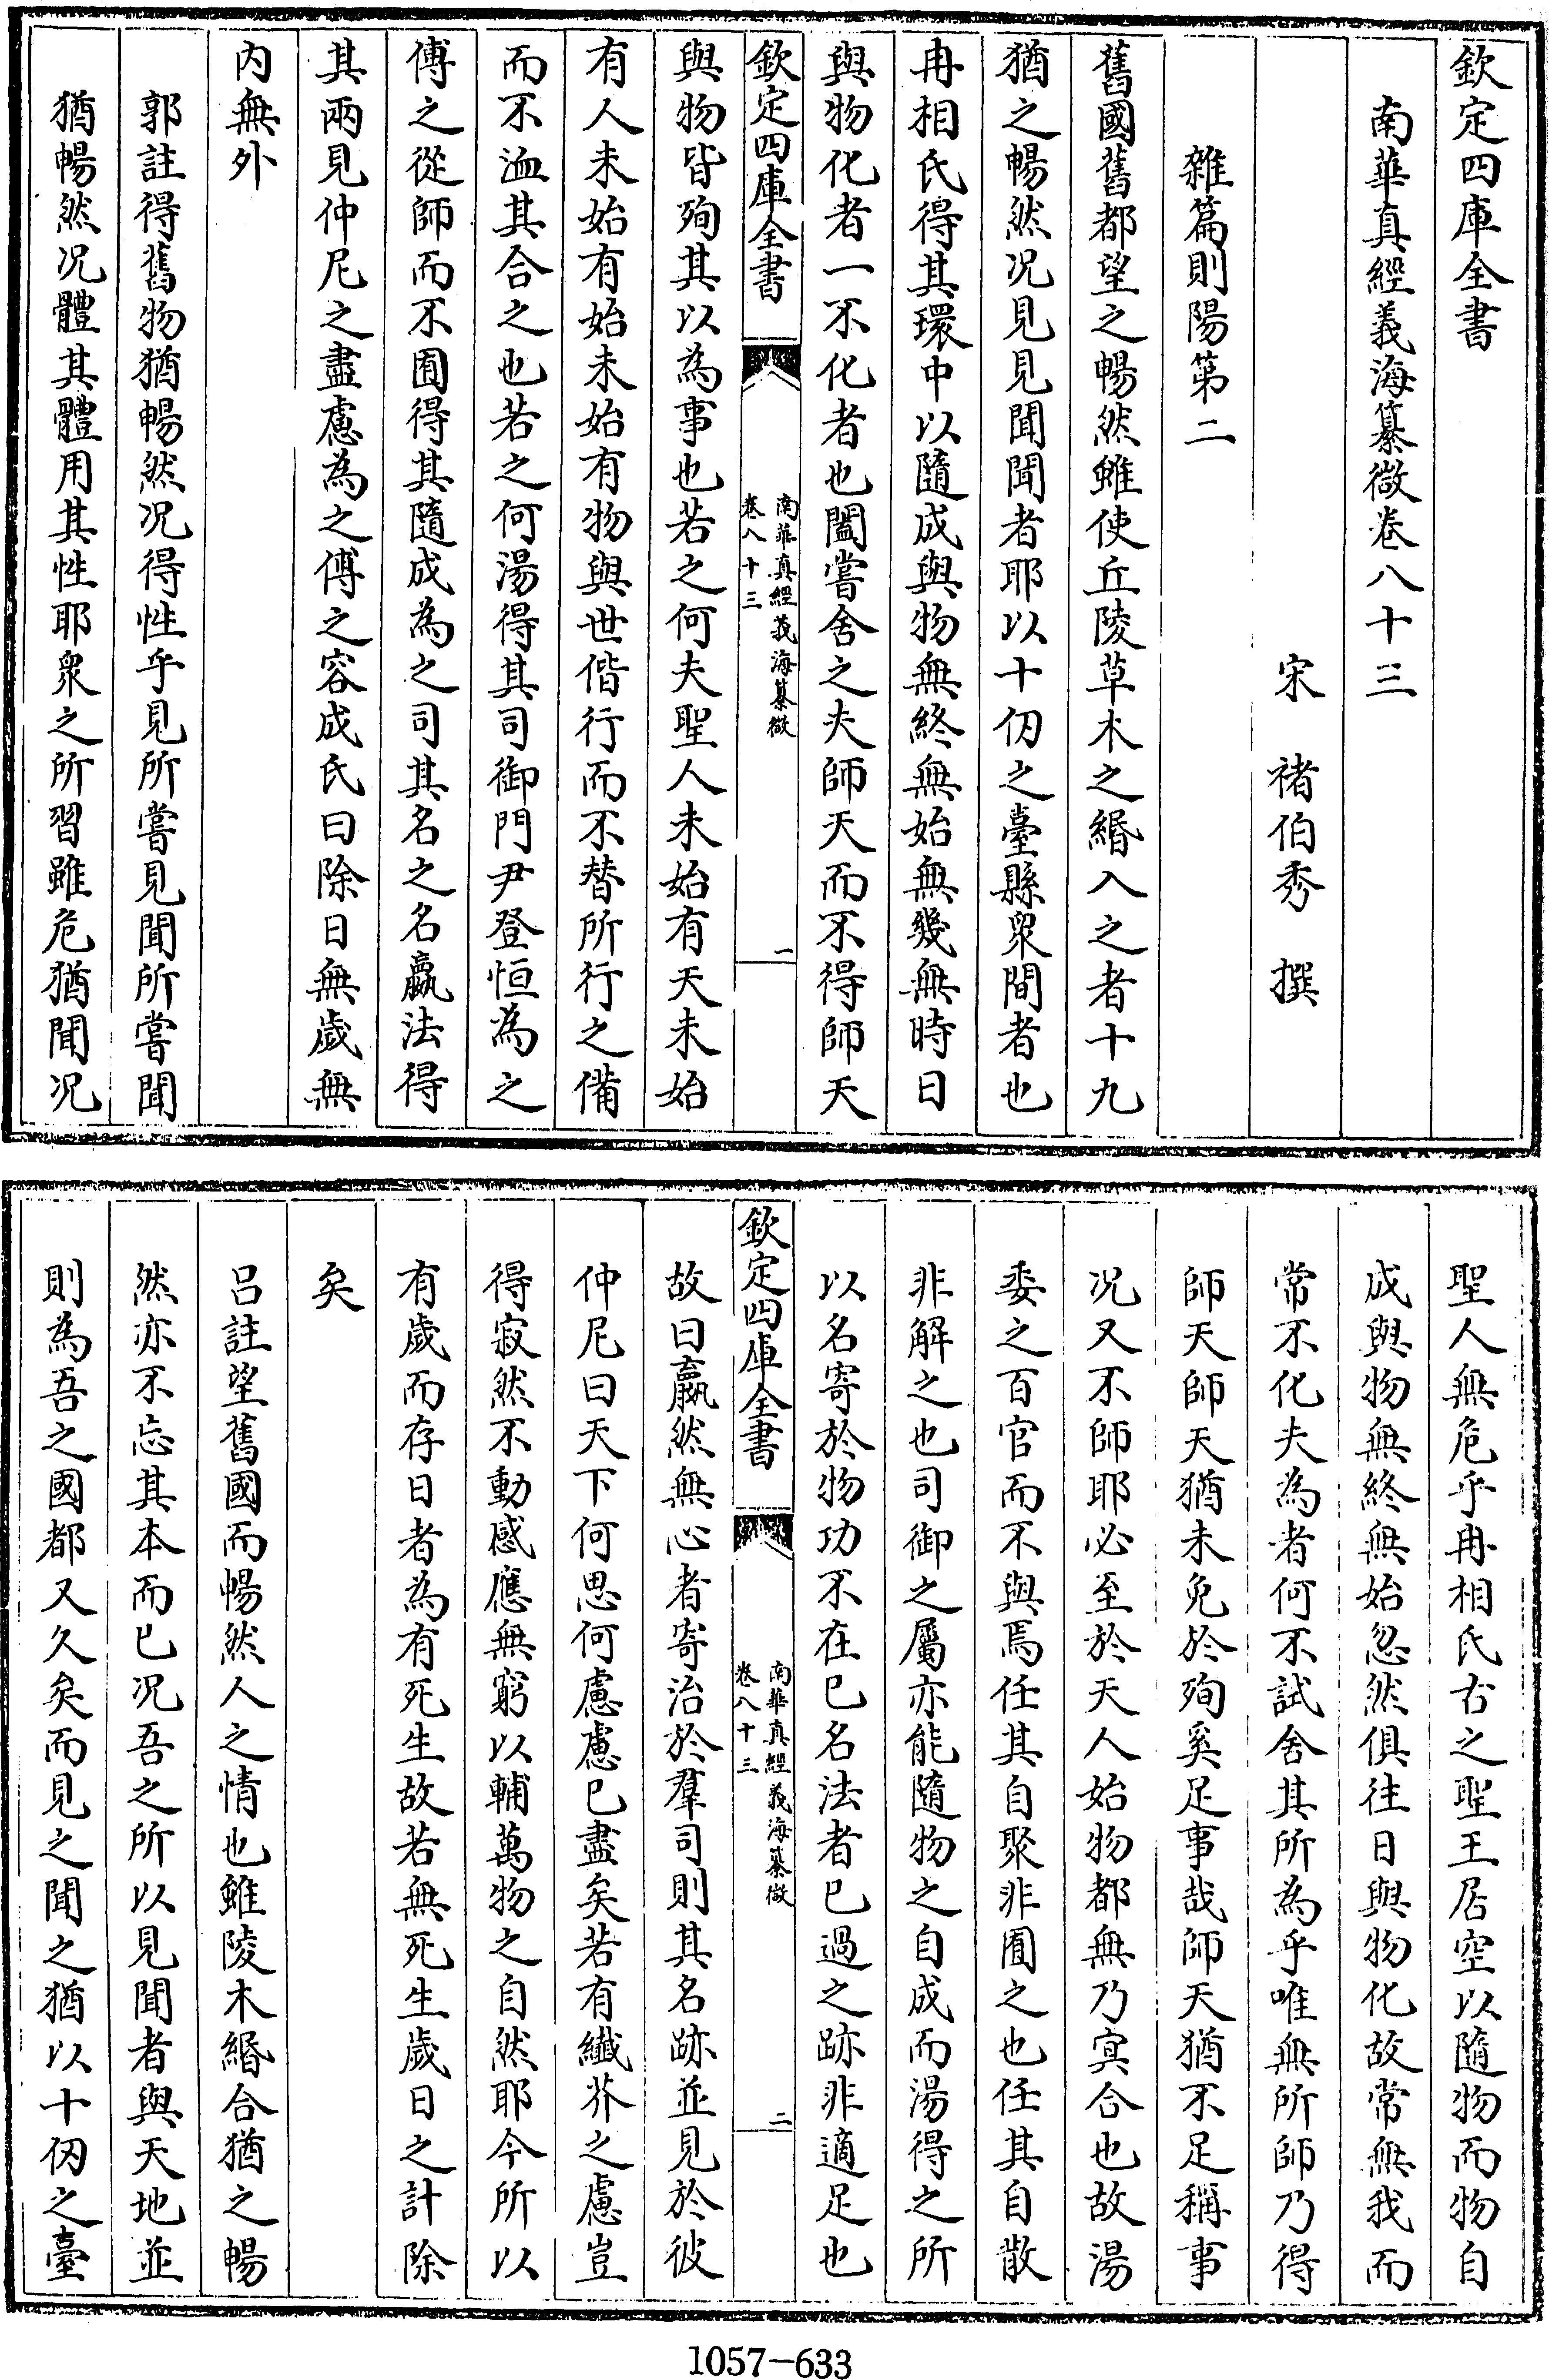 欽定四庫全書
南華真經義海纂微卷八十三
宋　禇伯秀　撰
雜篇則陽第二
舊國舊都望之暢然雖使丘陵草木之緡入之者十九
猶之暢然况見見聞聞者耶以十仞之臺縣衆間者也
冉相氏得其環中以隨成與物無終無始無幾無時日
與物化者一不化者也闔嘗舍之夫師天而不得師天
欽定四庫全書
南華真經義海纂微
卷八十三
一
與物皆殉其以為事也若之何夫聖人未始有天未始
有人未始有始未始有物與世偕行而不替所行之備
而不洫其合之也若之何湯得其司御門尹登恒為之
傅之從師而不囿得其隨成為之司其名之名嬴法得
其兩見仲尼之盡慮為之傅之容成氏曰除日無歲無
内無外
郭註得舊物猶暢然况得性乎見所嘗見聞所嘗聞
猶暢然况體其體用其性耶衆之所習雖危猶閒况
聖人無危乎冉相氏古之聖王居空以隨物而物自
成與物無終無始忽然俱往日與物化故常無我而
常不化夫為者何不試舍其所為乎唯無所師乃得
師天師天猶未免於殉奚足事哉師天猶不足稱事
况又不師耶必至於天人始物都無乃冥合也故湯
委之百官而不與焉任其自聚非囿之也任其自散
非解之也司御之屬亦能隨物之自成而湯得之所
以名寄於物功不在已名法者已過之跡非適足也
欽定四庫全書
南華真經義海纂微
卷八十三
二
故曰嬴然無心者寄治於羣司則其名跡並見於彼
仲尼曰天下何思何慮慮已盡矣若有纎芥之慮豈
得寂然不動感應無窮以輔萬物之自然耶今所以
有歲而存日者為有死生故若無死生歲日之計除
矣
吕註望舊國而暢然人之情也雖陵木緡合猶之暢
然亦不忘其本而已况吾之所以見聞者與天地並
則為吾之國都又久矣而見之聞之猶以十仞之臺
1057-633